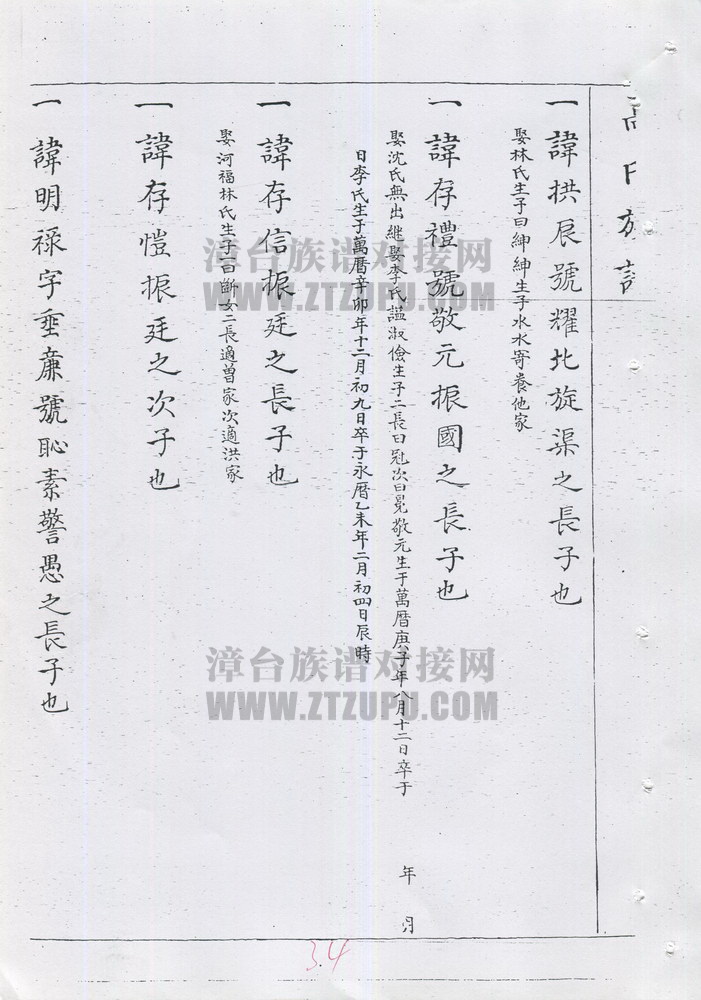 一諱拱辰號耀北旋渠之長子也
娶林氏生子曰紳紳生子水水寄養他家
一諱存禮號敬元振國之長子也
娶沈氏無出継娶李氏諡淑儉生子二長曰冠次曰冕敬元生于萬曆庚子年八月十二日卒于 年 月
日李氏生于萬曆辛卯年十二月初九日卒于永曆乙未年二月初四日辰時
一諱存信振廷之長子也
娶河福林氏生子曰斷女二長適曾家次適洪家
一諱存愷振廷之次子也
一諱明祿字垂廉號恥素警愚之長子也
漳台族谱对接网
WWW.ZTZUPU.COM
漳台族谱对接网
WWW.ZTZUPU.COM
34